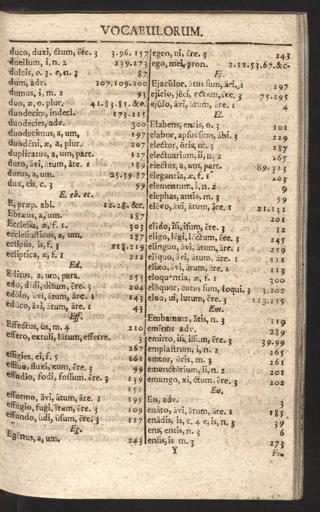 VOCABULORUM.
duco, duxi, ctum, ĕre. 3 3.96.157
duellum, i, n. 2 239.273
dulcis, o. 3. e, n. 3 87
dum, adv. 107.109.100
dumus, i, m. 2 93
duo, æ, o. plur. 41.83.85.&c.
duodecim, indecl. 173.215
duodecies, adv. 300
duodecimus, a, um, 197
duodēni, æ, a, plur. 207
duplicatus, a, um, part. 127
duro, āvi, ātum, āre. 1 189
durus, a, um. 25.39.87
dux, cis. c. 3 99
E. eb. ec.
E, præp. abl. 12.28.&c.
Ebræus, a, um. 187
Ecclesia, æ, f. 1. 303
ecclesiasticus, a, um. 287
eclipsis, is, f. 3 218.219
ecliptica, æ, f. 1 212
Ed.
Editus, a, um, part. 253
edo, didi, ditum, ĕre. 3 204
edŏlo, āvi, ātum, āre. 1 143
edŭco, āvi, ātum, āre. 1 43
Eff.
Effectus, ûs, m. 4 210
effero, extuli, lātum, efferre. 3
267
effigies, ei, f. 5 261
effluo, fluxi, xum, ĕre. 3 99
effodio, fodi, fossum, ĕre. 3 139
151
efformo, āvi, ātum, āre. 1 195
effugio, fugi, itum, ĕre. 3 109
effundo, ūdi, ūsum, ĕre. 3 117
Eg.
Egēnus, a, um. 243
egeo, ui, ēre. 3 243
ego, mei, pron. 2.11.53.67.&c.
Ej.
Ejacŭlor, ātus sum, āri. 1 297
ejicio, jeci, ectum, ĕre. 3 75.295
ejŭlo, āvi, ātum, āre. 1 4
El.
Elabens, entis, o. 3 101
elabor, apsus sum, abi. 3 229
elector, ōris, m. 3 287
electuarium, ii, n. 2 265
electus, a, um, part. 89.313
elegantia, æ, f. 1 203
elementum, i, n. 2 9
elephas, antis, m. 3 59
elĕvo, āvi, ātum, āre. 1 21.131
201
elido, isi, isum, ĕre. 3 12
eligo, lēgi, lectum, ĕre. 3 245
elinguo, āvi, ātum, āre. 1 259
eliquo, āvi, ātum, āre. 1 118
elixo, āvi, ātum, āre. 1 113
eloquentia, æ, f. 1 300
elŏquor, cutus sum, loqui. 3 3.202
eluo, ui, lutum, ĕre. 3 113.255
Em.
Embamma, ătis, n. 3 119
eminùs adv. 289
emitto, isi, issum, ĕre. 3 39.99
emplastrum, i, n. 2 265
emtor, ōris, m. 3 261
emunctorium, ii, n. 2 201
emungo, xi, ctum, ĕre. 3 202
En.
En, adv. 3
enăto, āvi, ātum, āre. 1 185
enādis, is, c. 4 e, is, n. 3 39
ens, entis, n. 3 6
ensis, is m. 3 273
Y